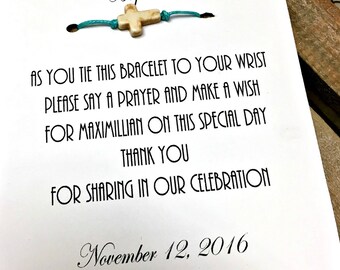 AS YOU TIE THIS BRACELET TO YOUR WRIST
PLEASE SAY A PRAYER AND MAKE A WISH
FOR MAXIMILLIAN ON THIS SPECIAL DAY
THANK YOU
FOR SHARING IN OUR CELEBRATION
November 12, 2016